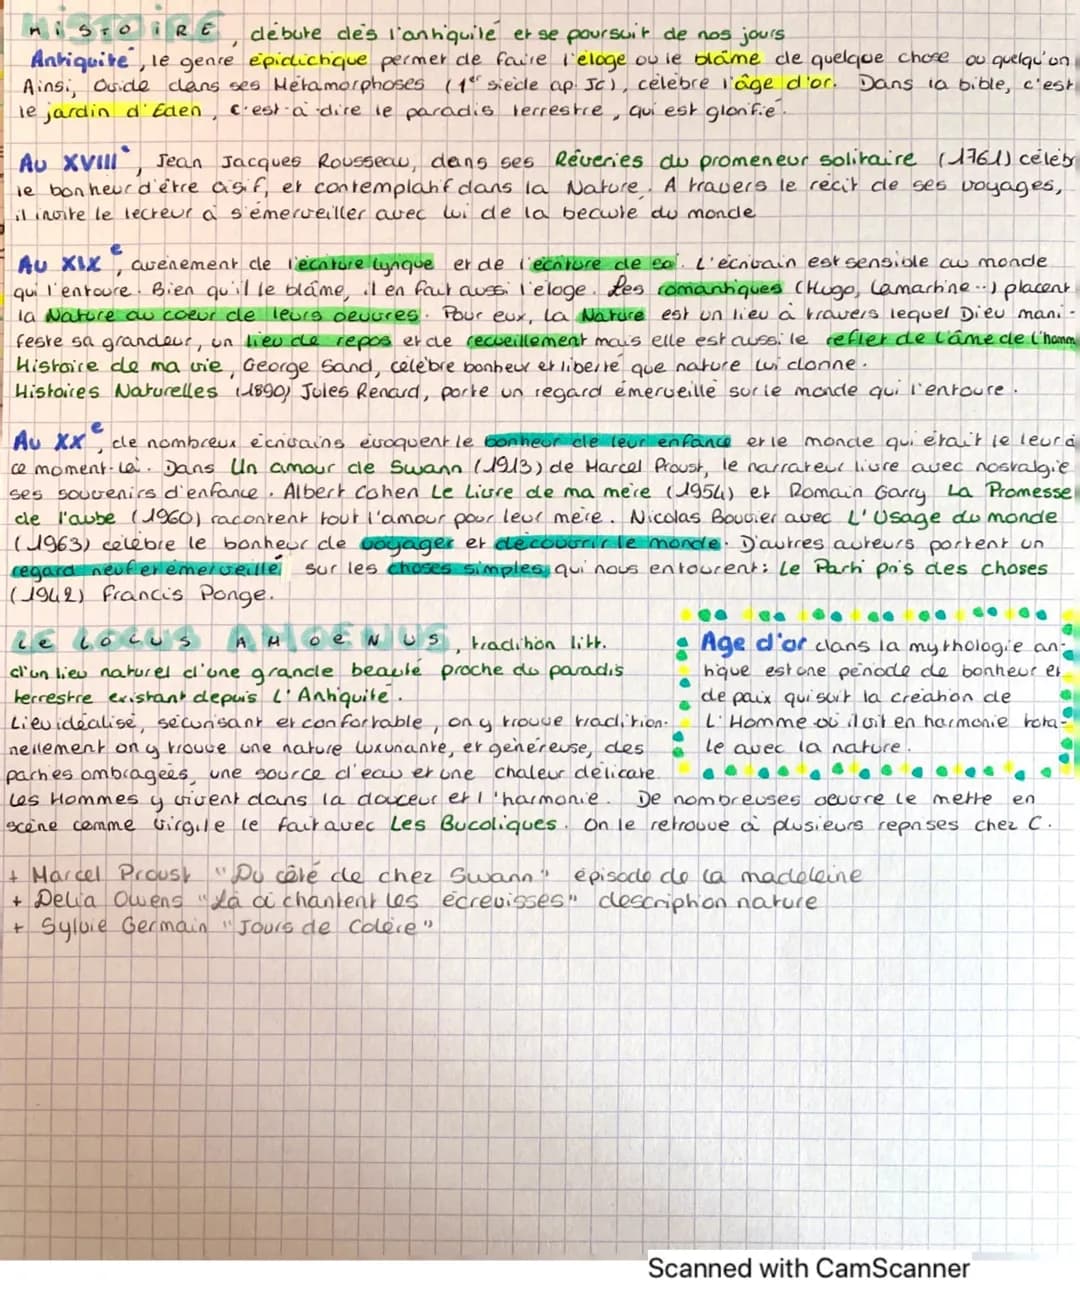 HISTOIRE, débute dès l'antiquité et se poursuit de nos jours
Antiquité, le genre épidictique permet de faire l'éloge ou le blâme de quelque chose ou quelqu'un
Ainsi, Ovide dans ses Métamorphoses (1er siècle ap. Jc), célèbre l'âge d'or. Dans la bible, c'est
le jardin d'Eden, c'est-à-dire le paradis terrestre, qui est glorifié.
Au XVIII, Jean Jacques Rousseau, dans ses Rêveries du promeneur solitaire (1761) célèb
le bonheur d'être oisif, et contemplatif dans la Nature. A travers le récit de ses voyages,
il invite le lecteur à s'émerveiller avec lui de la beauté du monde
Au XIXe, avènement de l'écriture lyrique et de l'écriture de soi. L'écrivain est sensible au monde
qui l'entoure. Bien qu'il le blâme, il en fait aussi l'éloge. Les romantiques (Hugo, Lamartine..) placent
la Nature au coeur de leurs oeuvres. Pour eux, la Nature est un lieu à travers lequel Dieu mani-
feste sa grandeur, un lieu de repos et de recueillement mais elle est aussi le reflet de l'âme de l'homm
Histoire de ma vie, George Sand, célèbre bonheur et liberté que nature lui donne.
Histoires Naturelles (1890) Jules Renard, porte un regard émerveillé sur le monde qui l'entoure.
Au XXe, de nombreux écrivains évoquent le bonheur de leur enfance et le monde qui était le leur à
ce moment-là. Dans Un amour de Swann (1913) de Marcel Proust, le narrateur livre avec nostalgie
ses souvenirs d'enfance. Albert Cohen Le Livre de ma mère (1954) et Romain Garry La Promesse
de l'aube (1960) racontent tout l'amour pour leur mère. Nicolas Bouvier avec L'Usage du monde
(1963) célèbre le bonheur de voyager et découvrir le monde. D'autres auteurs portent un
regard neuf et émerveillé sur les choses simples, qui nous entourent: Le Parti pris des choses
(1942) Francis Ponge.
LE LOCUS AMOENUS, tradition litt.
d'un lieu naturel d'une grande beauté proche du paradis
terrestre existant depuis L'Antiquité.
Lieu idéalisé, sécurisant et confortable, on y trouve tradition-
nellement on y trouve une nature luxuriante, et généreuse, des
parties ombragées, une source d'eau et une chaleur délicate.
Les Hommes y vivent dans la douceur et l'harmonie. De nombreuses oeuvre le mette en
scène comme Virgile le fait avec Les Bucoliques. On le retrouve à plusieurs reprises chez C.
Age d'or dans la mythologie an-
tique est une période de bonheur et
de paix qui suit la création de
L'Homme où il vit en harmonie tota-
le avec la nature.
+ Marcel Proust "Du côté de chez Swann" épisode de la madeleine
+ Delia Owens "Là où chantent les écrevisses" description nature
+ Sylvie Germain "Jours de Colère"
Scanned with CamScanner